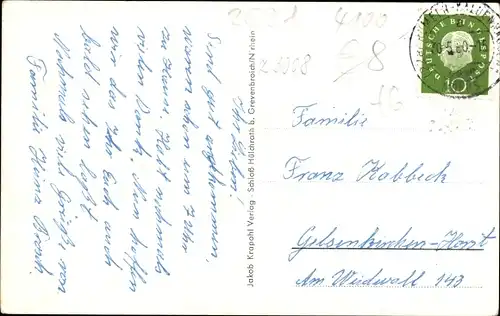 2631 4100
E8
Ihr Lieben!
Sind gut angekommen,
waren schon um 7 Uhr
zu Hause. Habt nochmals
vielen Dank. Nun hoffen
wir das Ihr Euch auch
bald sehen laßt.
Nochmals viele Grüße von
Familie Heinz
Jakob Krapohl Verlag Schloß Hülchrath b. Grevenbroich/Nrhein
DEUTSCHE BUNDESPOST
10
Familie
Franz Kabbeck
Gelsenkirchen-Horst
Am Wiedwall 143